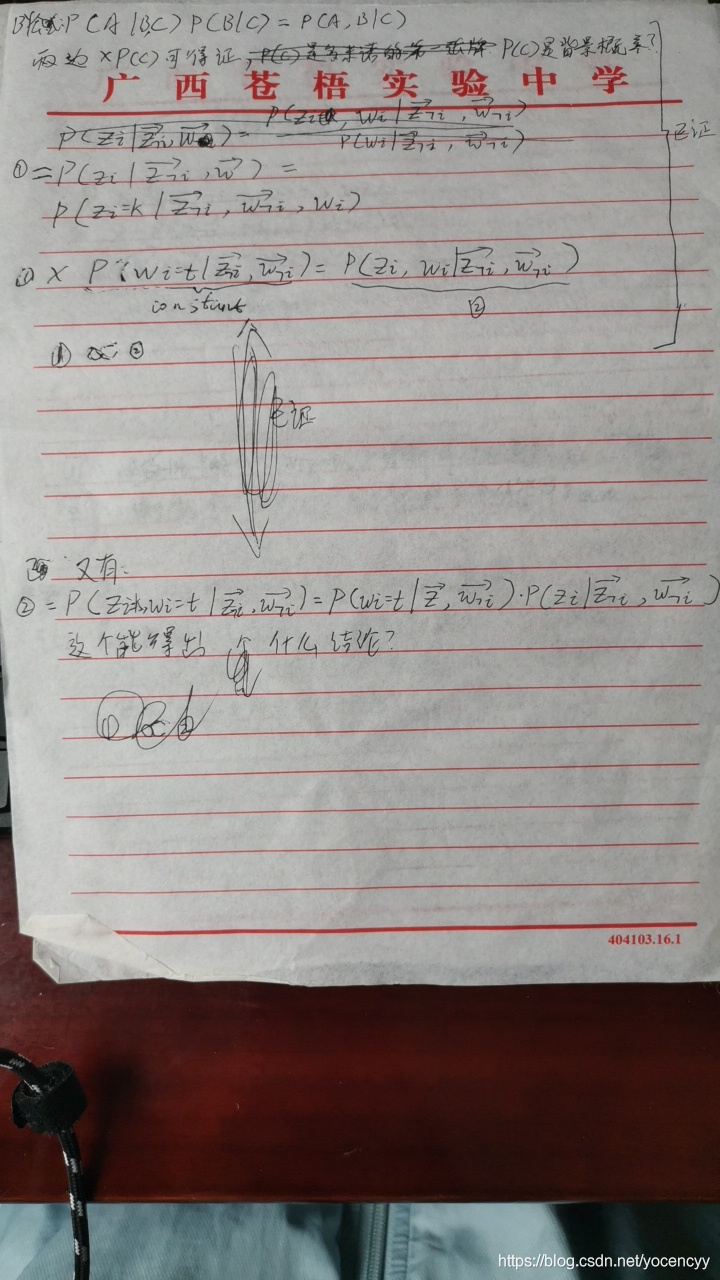 P(A|B,C) P(B|C) = P(A,B|C)
两边 ×P(C) 可得证, P(C)是背景概率?
广西苍梧实验中学
P(zi|z¬i, w) = P(zi, wi|z¬i, w¬i) / P(wi|z¬i, w¬i)
已证
① = P(zi|z¬i, w) =
P(zi=k|z¬i, w¬i, wi)
① × P(wi=t|z¬i, w¬i) = P(zi, wi|z¬i, w¬i)
constant ②
① ∝ ②
已证
又有:
② = P(zi=k, wi=t|z¬i, w¬i) = P(wi=t|z, w¬i)·P(zi|z¬i, w¬i)
这个能得出 什么结论?
404103.16.1
https://blog.csdn.net/yocencyy